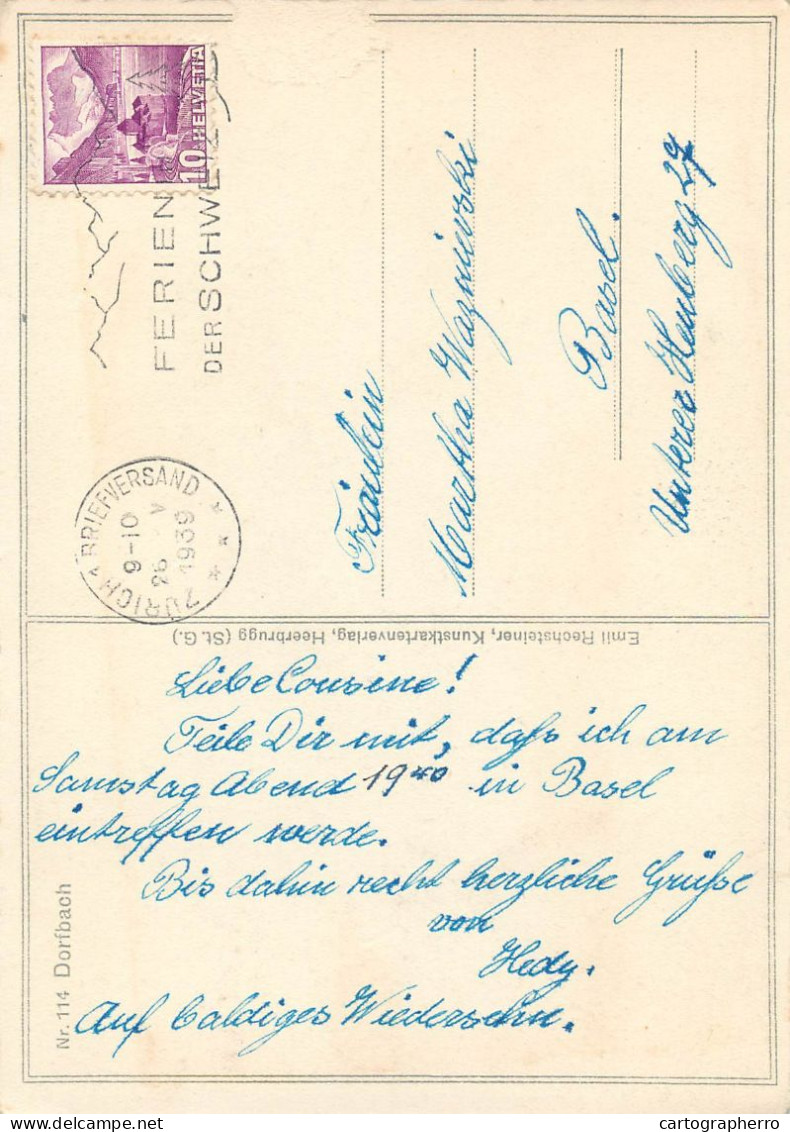 10 HELVETIA
FERIEN
DER SCHWEIZ
ZÜRICH 1 BRIEFVERSAND
9-10
26 V
1939
Fräulein
Martha Wazniewski
Basel.
Unterer Heuberg 27
Emil Rechsteiner, Kunstkartenverlag, Heerbrugg (St. G.)
Liebe Cousine!
Teile Dir mit, dass ich am
Samstag Abend 19 40 in Basel
eintreffen werde.
Bis dahin recht herzliche Grüsse
von
Hedy.
Auf baldiges Wiedersehn.
Nr. 114 Dorfbach
cartographerro